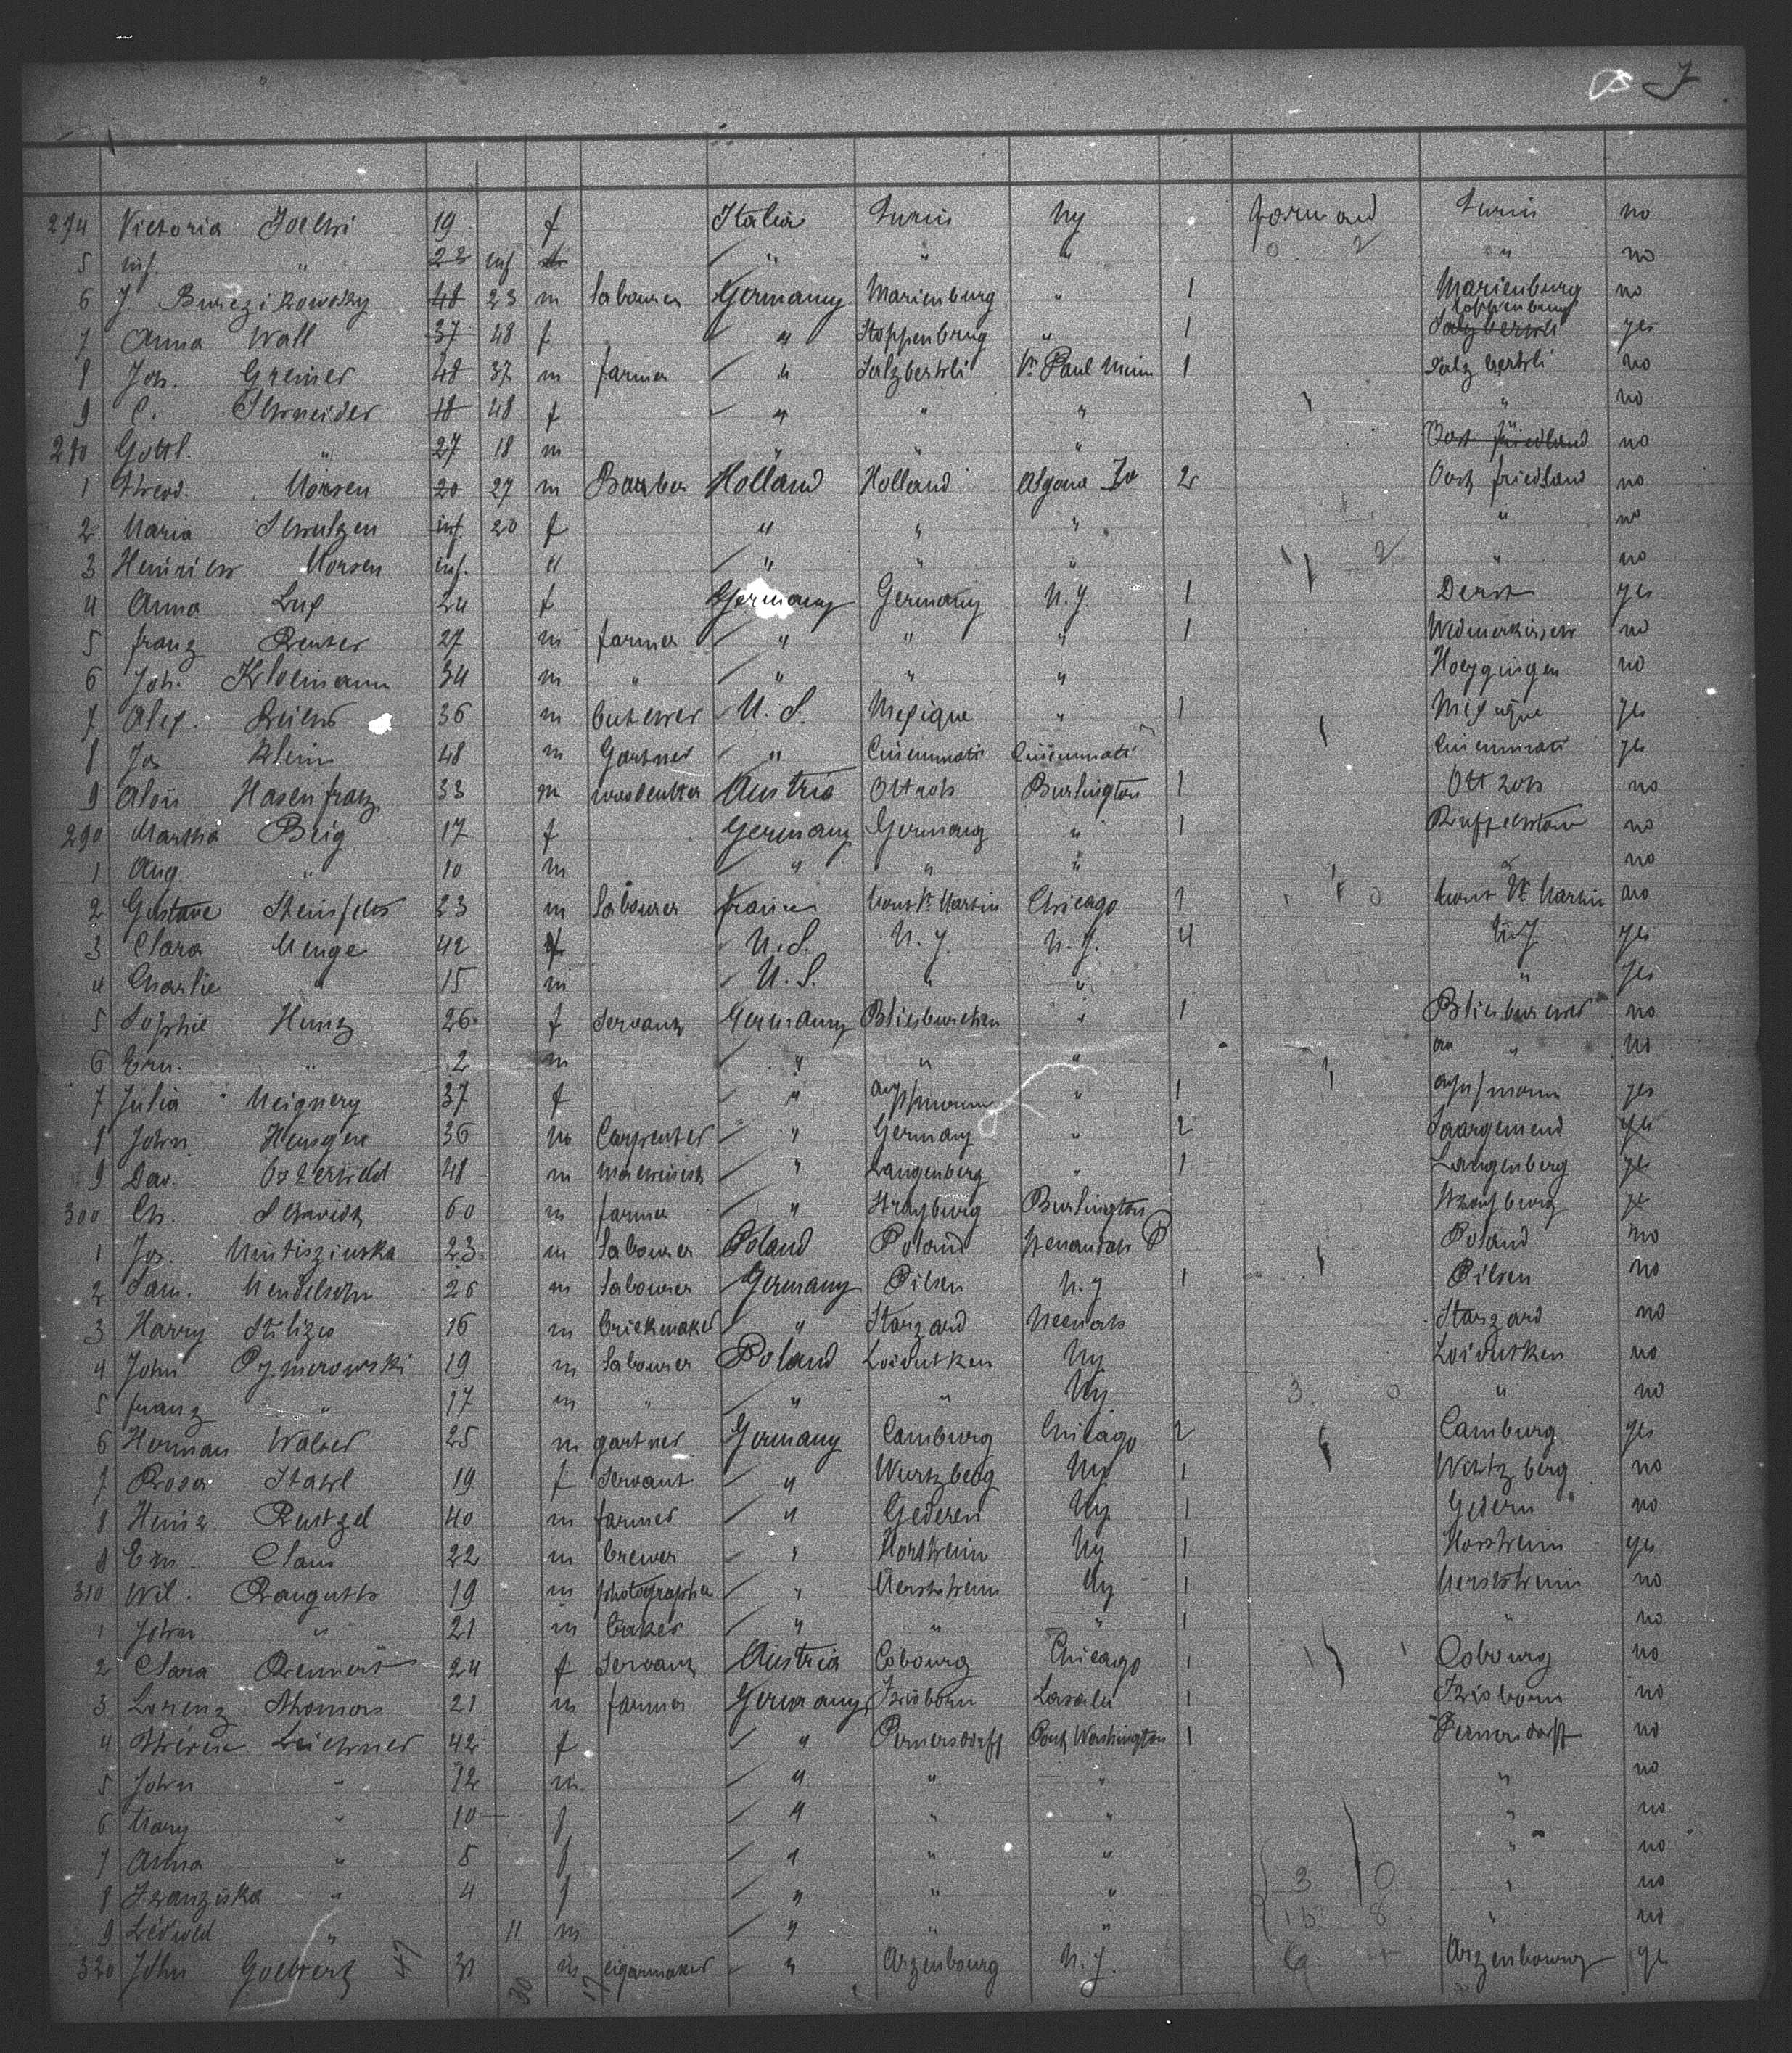 7
274 Victoria JoelHi 19 f Italia Turin Ny forward Turin no
5 inf. " 23 inf " " " 0 2 " no
6 J. Burczikowsky 48 23 m Labourer Germany Marienburg " 1 Marienburg no
7 Anna Wall 37 48 f " " Stoppenburg " 1 Salzbertrli Stoppenburg yes
8 Joh. Greiner 48 37 m farmer " Salzbertrli St Paul Minn 1 Salzbertrli no
9 C. Schneider 18 48 f " " " " no
280 Gottl. " 27 18 m " " " Oost friedland no
1 Theod. Morsen 20 27 m Barber Holland Holland Algona Io 2 Oost friedland no
2 Maria Schulzen inf. 20 f " " " " no
3 Heinrich Morsen inf. " " " " 2 " no
4 Anna Luf 24 f Germany Germany N.Y. 1 Derst yes
5 franz Reuter 27 m farmer " " " 1 no
6 Joh. Klolmann 34 m " " " " Hoygingen no
7 Alex. 36 m butcher U.S. Mexique " 1 Mexique yes
8 Jos Klein 48 m Gartner " Cincinnati Cincinnati Cincinnati yes
9 Alois Hasenfratz 33 m Austria Ottroh Burlington 1 Ott roh no
290 Martha Beig 17 f Germany Germany " 1 no
1 Aug. " 10 m " " " " no
2 Gustave Steinfels 23 m Labourer france Mont St Martin Chicago 1 0 Mont St Martin no
3 Clara Menge 42 f U.S. N.Y. N.Y. 4 N.Y. yes
4 Charlie " 15 m U.S. " " " yes
5 Sophie Hinz 26 f Servant Germany " 1 no
6 Ern. " 2 m " " " " no
7 Julia Meignery 37 f " " 1 yes
8 John Hensgen 36 m Carpenter " Germany " 2 Saargemend yes
9 Dav. Osterwald 48 m machinist " Langenberg " 1 Langenberg yes
300 Ch. Schmidt 60 m farmer " Strassburg Burlington Strassburg ye
1 Jos. 23 m Labourer Poland Poland Shenandoh P Poland no
2 Sam. Mendelsohn 26 m Labourer Germany Pilsen N.Y 1 Pilsen no
3 Harry 16 m brickmaker " Stargard Stargard no
4 John Pymerowski 19 m Labourer Poland Loidutken Ny Loidutken no
5 franz " 17 m " " " Ny 3. 0 " no
6 Herman Walter 25 m gartner Germany Camburg Chicago 2 Camburg yes
7 Rosa Stahl 19 f Servant " Wurtzberg Ny 1 Wurtzberg no
8 Heinr. Rutzel 40 m farmer " Gederen Ny 1 Gedern no
8 Em. Claus 22 m brewer " Horsheim Ny 1 Horsheim yes
310 Wil. Rauguth 19 m photographer " Merstheim Ny 1 Merstheim no
1 John " 21 m baker " " " 1 " no
2 Clara Rennert 24 f Servant Austria Cobourg Chicago 1 Cobourg no
3 Lorenz Thomas 21 m farmer Germany Frisborn Lasalle 1 Frisborn no
4 Therese Leichner 42 f " Pernersdorff Port Washington 1 Pernersdorff no
5 John " 12 m " " " " no
6 Mary " 10 f " " " " no
7 Anna " 5 f " " " " no
8 Franziska " 4 f " " " 3 0 " no
9 " 11 m " " " 15 8 " no
320 John Goebertz 31 m cigarmaker " Arzenbourg N.Y. Arzenbourg ye
47 30 17